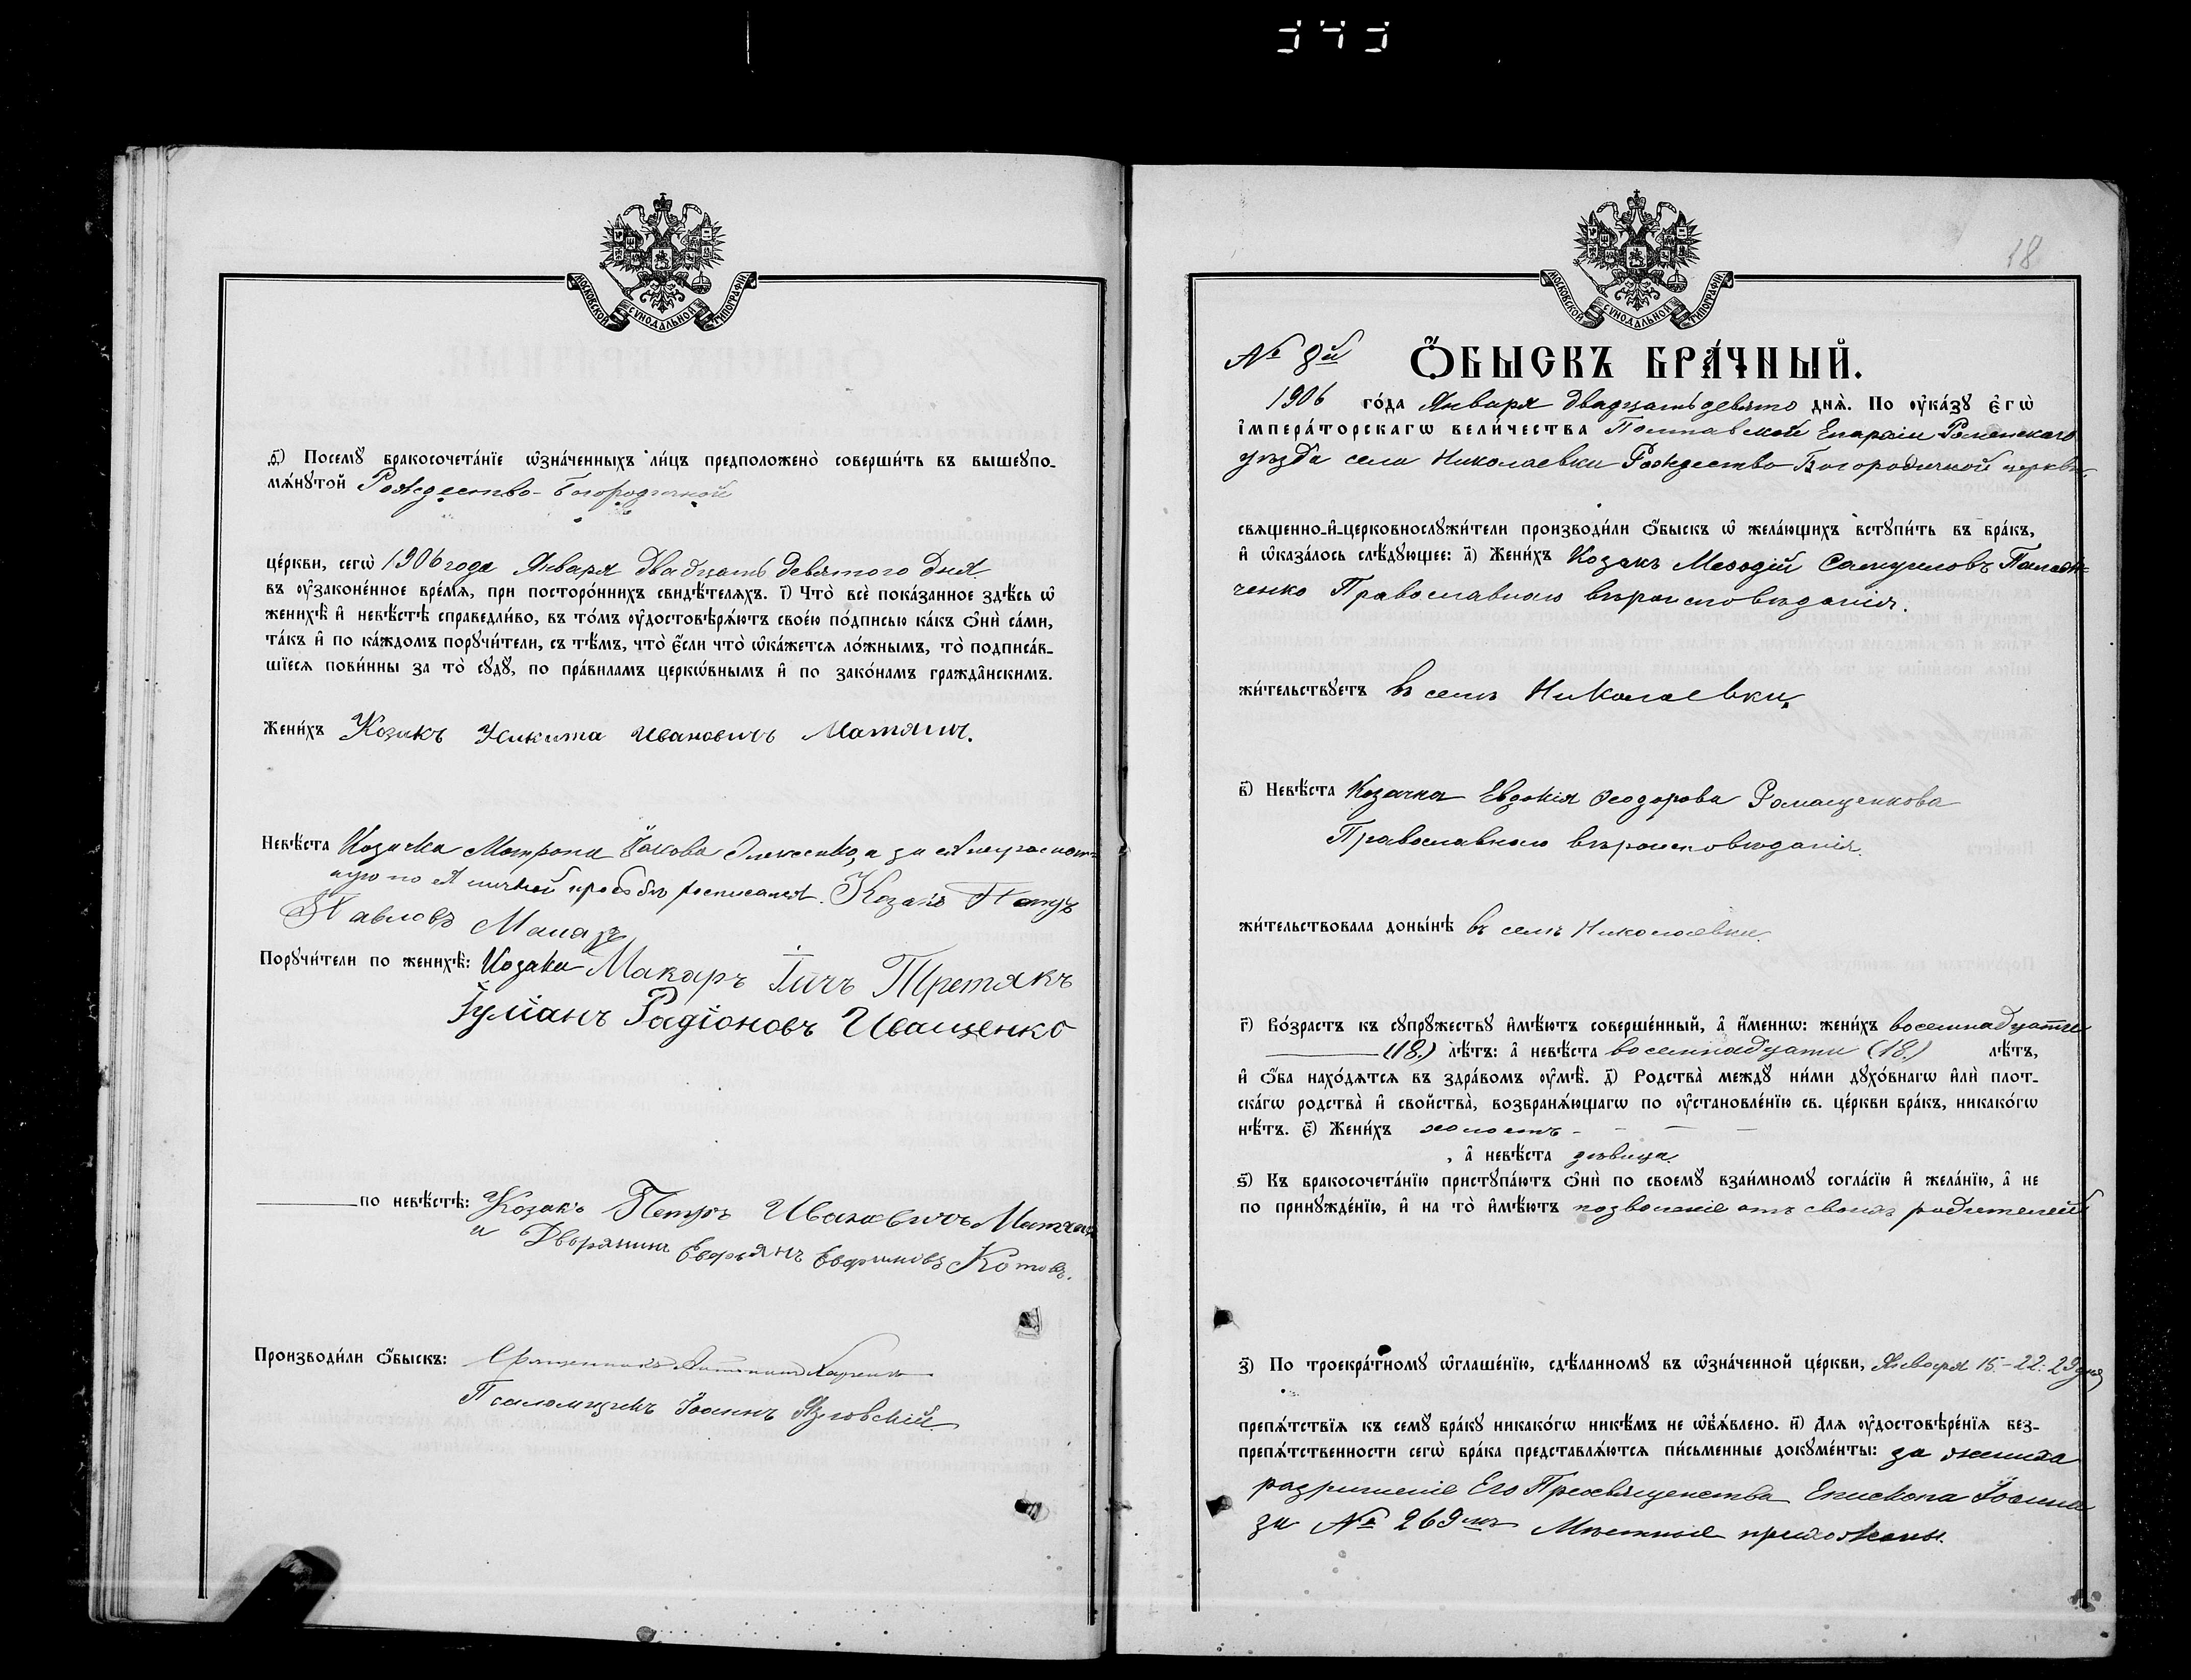 МОСКОВСКОЙ СѴНОДАЛЬНОЙ ТИПОГРАФІИ
ѳ҃) Посемꙋ̀ бракосочета́нїе ѡ҆зна́ченныхъ ли́цъ предположено̀ соверши́ть въ вышеꙋпо-
мѧ́нꙋтой Рождество-Богородичной
це́ркви, сегѡ̀ 1906 года Января двадцать девятого дня
въ ᲂу҆законе́нное вре́мѧ, при посторо́ннихъ свидѣ́телѧхъ. і҃) Что̀ всѐ пока́занное здѣ́сь ѡ҆
женихѣ̀ и҆ невѣ́стѣ справедли́во, въ то́мъ ᲂу҆достовѣрѧ́ютъ свое́ю по́дписью ка́къ ѻ҆нѝ са́ми,
та́къ и҆ по ка́ждомъ порꙋчи́тели, съ тѣ́мъ, что̀ є҆́сли что̀ ѡ҆ка́жетсѧ ло́жнымъ, то̀ подписа́в-
шїесѧ пови́нны за то̀ сꙋдꙋ̀, по пра́виламъ церкѡ́внымъ и҆ по зако́намъ гражда́нскимъ.
Жени́хъ Козакъ Никита Ивановичъ Матяшъ.
Невѣ́ста Козачка Матрона Іакова Олексенко, а за ея неграмот-
ную по ея личной просьбѣ росписался. Козакъ Петръ
Павловъ
Порꙋчи́тели по женихѣ̀: Козаки Макаръ Третякъ
Іуліанъ Радіоновъ Иващенко
по невѣ́стѣ: Козакъ Петръ Ивановичъ Матяшъ
и Дворянинъ Котовъ.
Производи́ли ѻ҆́быскъ: Священникъ
Псаломщикъ Іоаннъ
18
МОСКОВСКОЙ СѴНОДАЛЬНОЙ ТИПОГРАФІИ
№ 8й Ѻ҆́БЫСКЪ БРА́ЧНЫЙ.
1906 го́да Января двадцать девято днѧ̀. По ᲂу҆ка́зꙋ є҆гѡ̀
і҆мпера́торскагѡ вели́чества Полтавской Епархіи Роменскаго
уѣзда села Николаевки Рождество Богородичной церкви
свѧщенно-и҆-церковнослꙋжи́тели производи́ли ѻ҆́быскъ ѡ҆ жела́ющихъ встꙋпи́ть въ бра́къ,
и҆ ѡ҆каза́лось слѣ́дꙋющее: а҃) Жени́хъ Козакъ Меѳодій Самуиловъ Палад-
ченко Православнаго вѣроисповѣданія.
жи́тельствꙋетъ въ селѣ Николаевки.
в҃) Невѣ́ста Козачка Евдокія Ѳеодорова Ромащенкова
Православнаго вѣроисповѣданія.
жи́тельствовала доны́нѣ въ селѣ Николаевки.
г҃) Во́зрастъ къ сꙋпрꙋжествꙋ и҆мѣ́ютъ соверше́нный, а҆ и҆́меннѡ: жени́хъ восемнадцати
(18.) лѣ́тъ: а҆ невѣ́ста восемнадцати (18.) лѣ́тъ,
и҆ ѻ҆́ба нахо́дѧтсѧ въ здра́вомъ ᲂу҆мѣ̀. д҃) Родства̀ междꙋ̀ ни́ми дꙋхо́внагѡ и҆лѝ плот-
ска́гѡ родства̀ и҆ сво́йства̀, возбранѧ́ющагѡ по ᲂу҆становле́нїю св. це́ркви бра́къ, никако́гѡ
нѣ́тъ. є҃) Жени́хъ холостъ
, а҆ невѣ́ста дѣвица.
ѕ҃) Къ бракосочета́нїю пристꙋпа́ютъ ѻ҆нѝ по своемꙋ̀ взаи́мномꙋ согла́сїю и҆ жела́нїю, а҆ не
по принꙋжде́нїю, и҆ на то̀ и҆мѣ́ютъ позволеніе отъ своихъ родителей
з҃) По троекра́тномꙋ ѡ҆глаше́нїю, сдѣ́ланномꙋ въ ѡ҆зна́ченной це́ркви, Января 15-22-29 дня
препѧ́тствїѧ къ семꙋ̀ бра́кꙋ никако́гѡ никѣ́мъ не ѡ҆б̾ѧ́влено. и҃) Длѧ ᲂу҆достовѣре́нїѧ без-
препѧ́тственности сегѡ̀ бра́ка представлѧ́ютсѧ пи́сьменные докꙋме́нты: за жениха
разрѣшеніе Его Преосвященства Епископа Іоанна
за № 269мъ Мѣстные прихожаны.